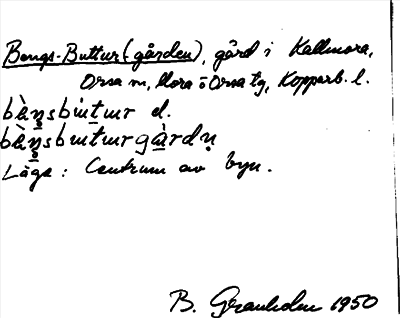 Bengs-Buttur (gården), gård i Kallmora,
Orsa sn, Mora o Orsa tg, Kopparb. l.
bèŋ̥sbut̠ur el.
bèŋ̥sbut̠urgà̠rdṇ
Läge: Centrum av byn.
B. Granholm 1950